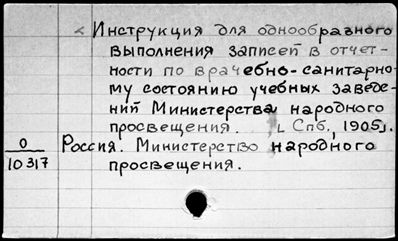 < Инструкция для однообразного
выполнения записей в отчет-
ности по врачебно-санитарно-
му состоянию учебных заведе-
ний Министерства народного
просвещения. [Спб., 1905].
O
10317
Россия. Министерство народного
просвещения.